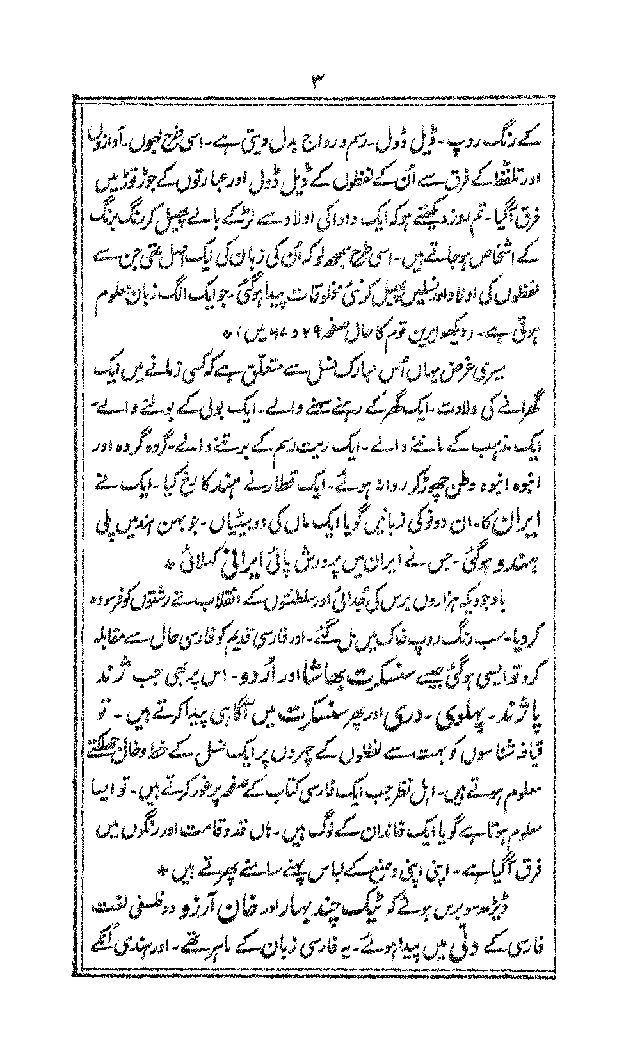 ۳
کے رنگ روپ - ڈیل ڈول - رسم و رواج بدل دیتی ہے - اسی طرح لہجوں - آوازوں
اور تلفظ کے فرق سے اُن کے لفظوں کے ڈیل ڈول اور عبارتوں کے جوڑ توڑ میں
فرق آگیا - تم روز دیکھتے ہو کہ ایک دادا کی اولاد سے لڑکے بالے پھیل کر رنگ برنگ
کے اشخاص ہو جاتے ہیں - اسی طرح سمجھ لو کہ اُن کی زبان کی ایک اصل تھی جن سے
لفظوں کی اولاد اور نسلیں پھیل کر نئی مخلوقات پیدا ہو گئی - جو ایک الگ زبان معلوم
ہوتی ہے - (دیکھو ایرین قوم کا حال صفحہ ۲۹ و ۶۷ میں) *
میری غرض یہاں اُس مبارک نسل سے متعلق ہے کہ کسی زمانے میں ایک
گھرانے کی ولادت - ایک گھر کے رہنے سہنے والے - ایک بولی کے بولنے والے -
ایک مذہب کے ماننے والے - ایک ریت رسم کے برتنے والے - گروہ گروہ اور
انبوہ انبوہ وطن چھوڑ کر روانہ ہوئے - ایک قطار نے ہند کا رخ کیا - ایک نے
ایران کا - ان دونو کی زبانیں گویا ایک ماں کی دو بیٹیاں - جو بہن ہند میں پلی
ہندو ہو گئی - جس نے ایران میں پرورش پائی ایرانی کہلائی *
باوجودیکہ ہزاروں برس کی جُدائی اور سلطنتوں کے انقلاب نے رشتوں کو فرسودہ
کر دیا - سب رنگ روپ خاک میں مل گئے - اور فارسی قدیم کو فارسی حال سے مقابلہ
کرو تو ایسی ہو گئی جیسے سنسکرت بھاشا اور اُردو - اس پر بھی جب ژند
پاژند - پہلوی - دری اور پھر سنسکرت میں آگاہی پیدا کرتے ہیں - تو
قیافہ شناسوں کو بہت سے لفظوں کے چہروں پر ایک نسل کے خط و خال جھلکتے
معلوم ہوتے ہیں - اہل نظر جب ایک فارسی کتاب کے صفحہ پر غور کرتے ہیں - تو ایسا
معلوم ہوتا ہے گویا ایک خاندان کے لوگ ہیں - ہاں قد و قامت اور رنگوں میں
فرق آگیا ہے - اپنی اپنی وضع کے لباس پہنے سامنے پھرتے ہیں *
ڈیڑھ سو برس ہوئے کہ ٹیک چند بہار اور خان آرزو دو فلسفی لغت
فارسی کے دلّی میں پیدا ہوئے - یہ فارسی زبان کے ماہر تھے - اور ہندی اُنکے